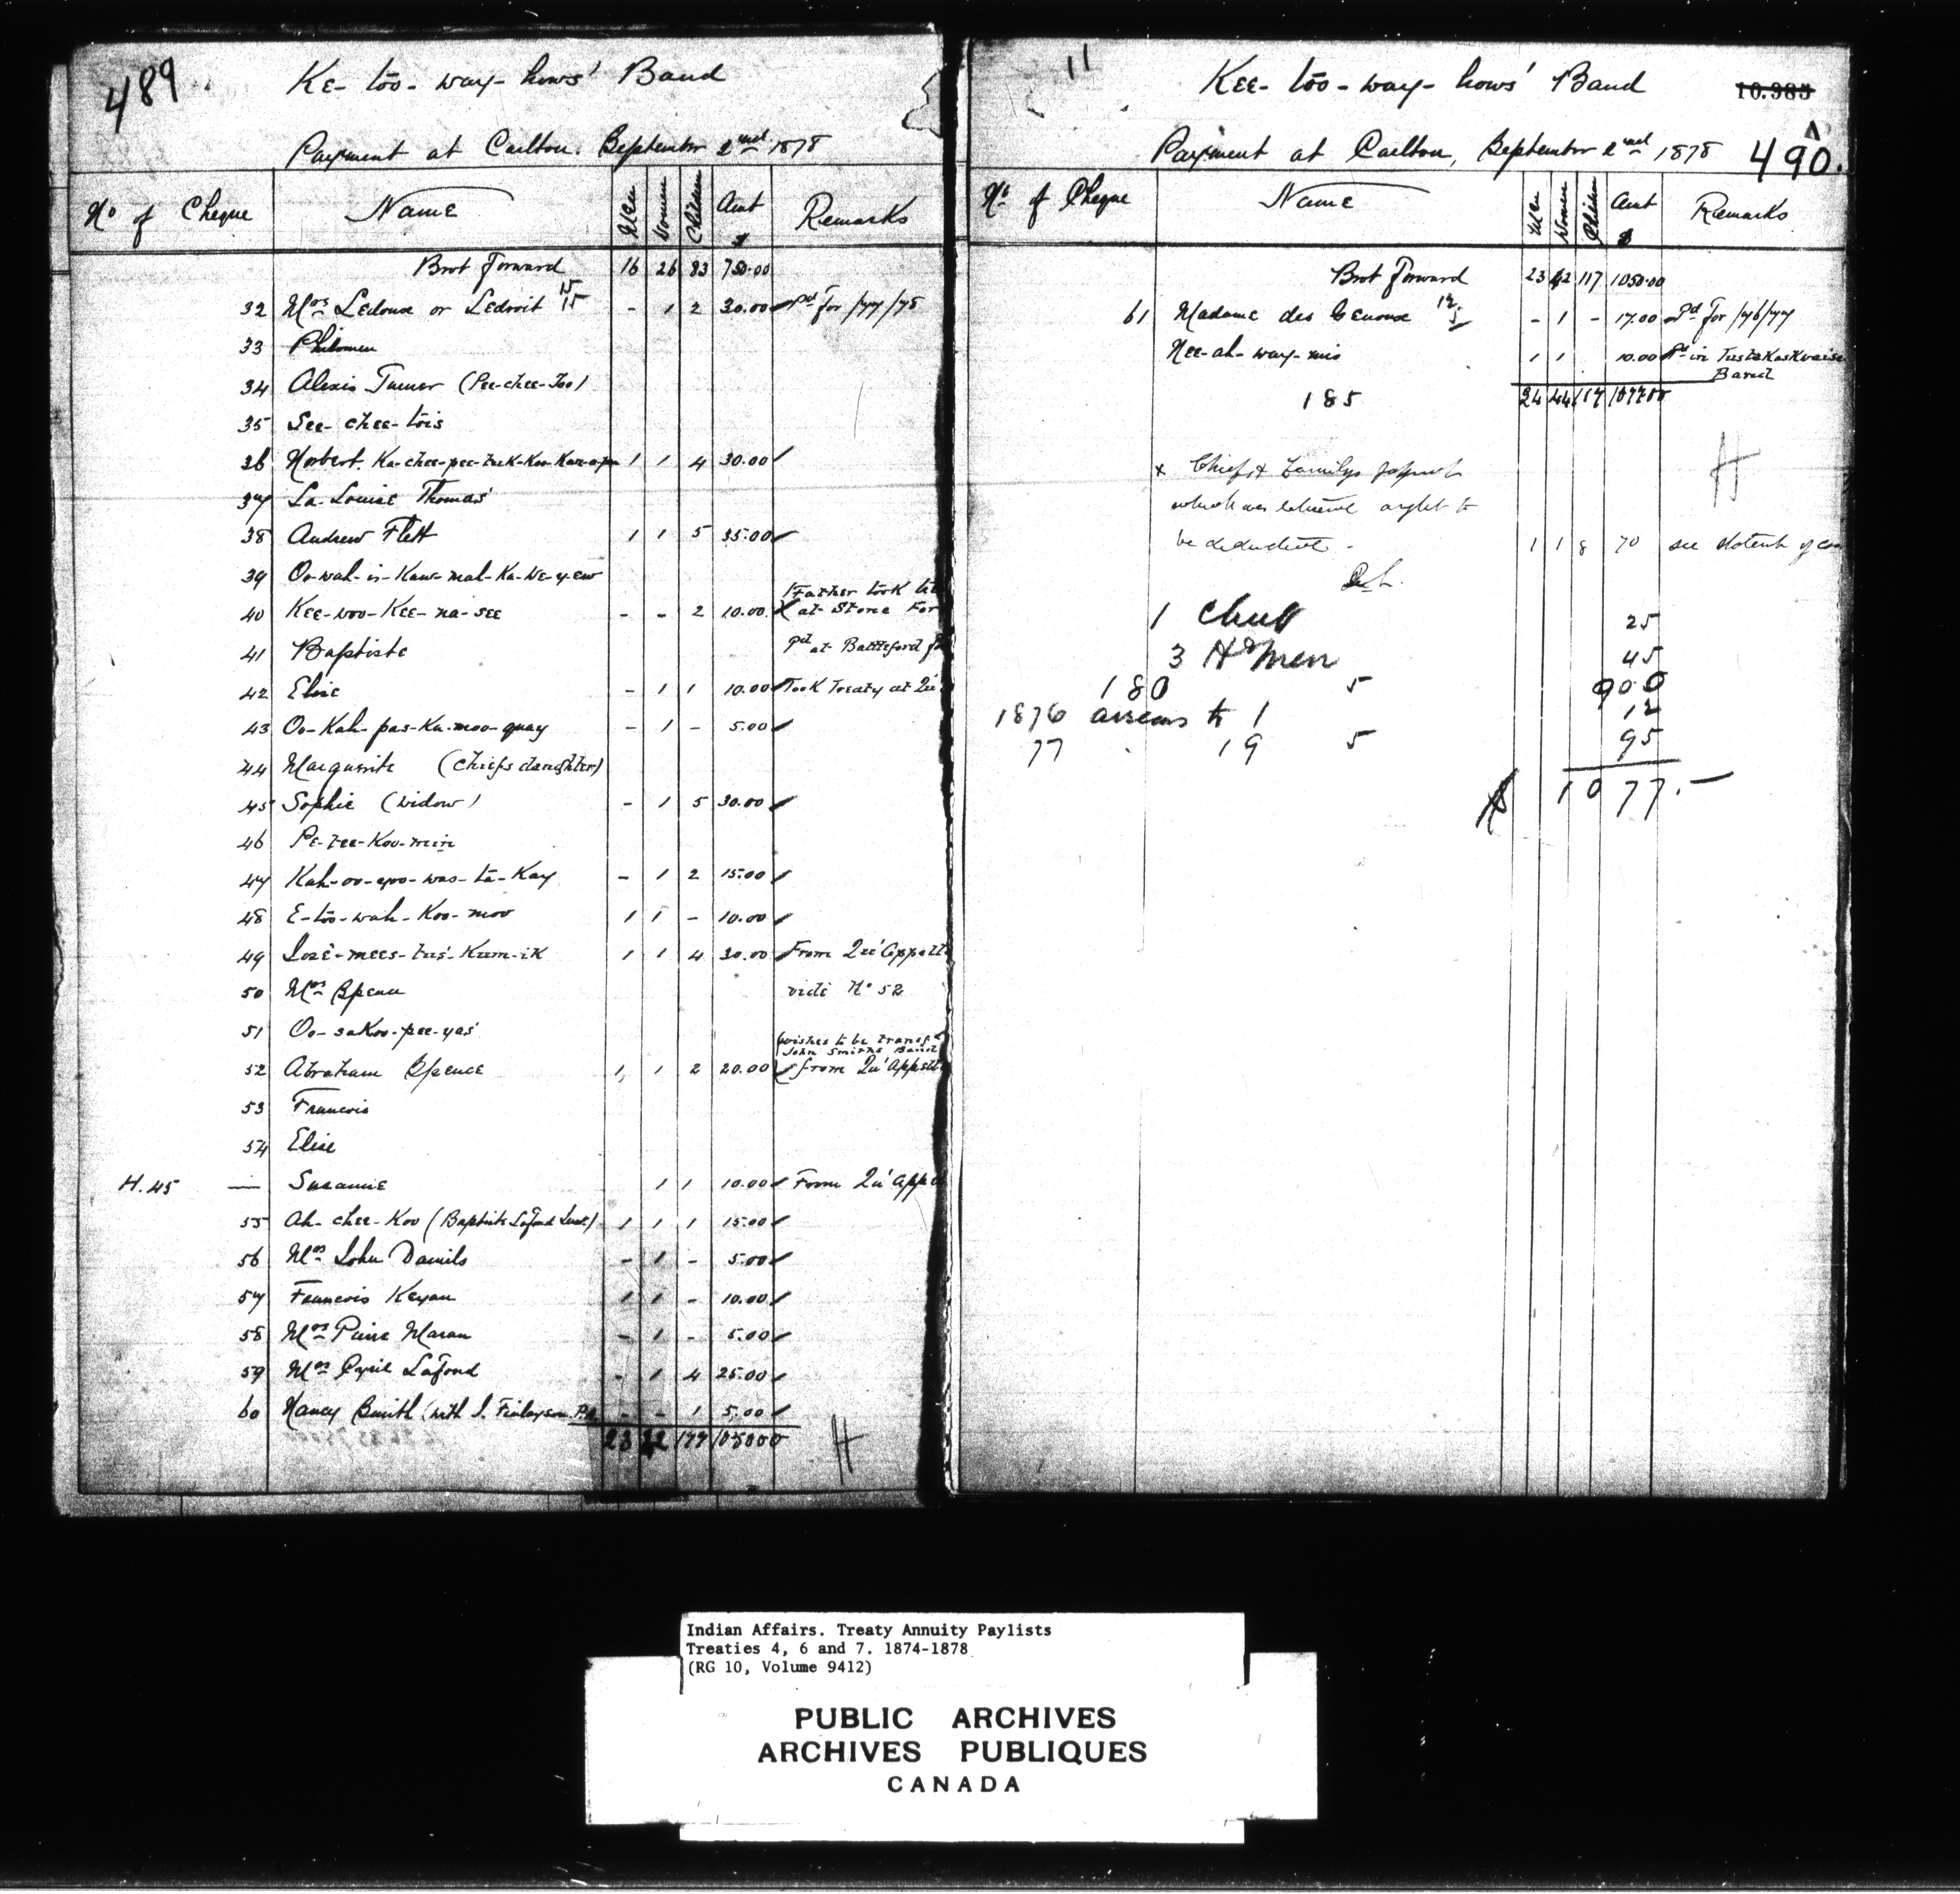 489
Ke-too-way-hows' Band
Payment at Carlton. September 2nd 1878
No of Cheque Name Men Women Children Amt $ Remarks
Brot Forward 16 26 83 750.00
32 Mrs Ledoux or Ledroit 15 15 - 1 2 30.00 Pd for /77/78
33 Philomen
34 Alexis Turner (Pee-chee-Too)
35 See-chee-tois
36 Norbert. 1 1 4 30.00
37 La-Louise Thomas'
38 Andrew Flett 1 1 5 35.00
39 Oo-wah-is-Kaw-mah-Ka-we-yew
40 Kee-woo-Kee-na-see - - 2 10.00 Father took at Stone For
41 Baptiste Pd at Battleford
42 Elise - 1 1 10.00 Took Treaty at Qu'
43 Oo-Kah-pas-Ka-moo-quay - 1 - 5.00
44 Marguerite (Chiefs daughter)
45 Sophie (Widow) - 1 5 30.00
46 Pe-tee-Koo-min
47 Kah-oo-apoo-was-ta-Kay - 1 2 15.00
48 E-too-wah-Koo-moo 1 1 - 10.00
49 José-mees-tus-Kum-iK 1 1 4 30.00 From Qu'Appelle
50 Mrs Spence vide No 52
51 Oo-saKoo-pee-yas'
52 Abraham Spence 1 1 2 20.00 wishes to be transfd John Smiths Band from Qu'Appelle
53 Francois
54 Elise
H.45 — Susanne 1 1 10.00 From Qu'Appe
55 Ah-chee-Koo (Baptiste Lafond) 1 1 1 15.00
56 Mrs John Daniels - 1 - 5.00
57 Francois Keyan 1 1 - 10.00
58 Mrs Pierre Maran - 1 - 5.00
59 Mrs Cyril Lafond - 1 4 25.00
60 Nancy Smith (with J. Finlayson - - 1 5.00
23 42 117 1050.00
H
11
Kee-too-way-hows' Band
10.985
Payment at Carlton, September 2nd 1878
490.
No of Cheque Name Men Women Children Amt $ Remarks
Brot Forward 23 42 117 1050.00
61 Madame des Genoux 12 5 - 1 - 17.00 Pd for /76/77
Nee-ah-way-mis 1 1 10.00 Pd in Band
185 24 44 117 1077.00
x Chief & Familys payment
which we believe ought to
be deducted - 1 1 8 70 see
1 Chief 25
3 Hd men 45
180 5 900
1876 arrears to 1 12
77 19 5 95
1077.—
H
Indian Affairs. Treaty Annuity Paylists
Treaties 4, 6 and 7. 1874-1878
(RG 10, Volume 9412)
PUBLIC ARCHIVES
ARCHIVES PUBLIQUES
CANADA